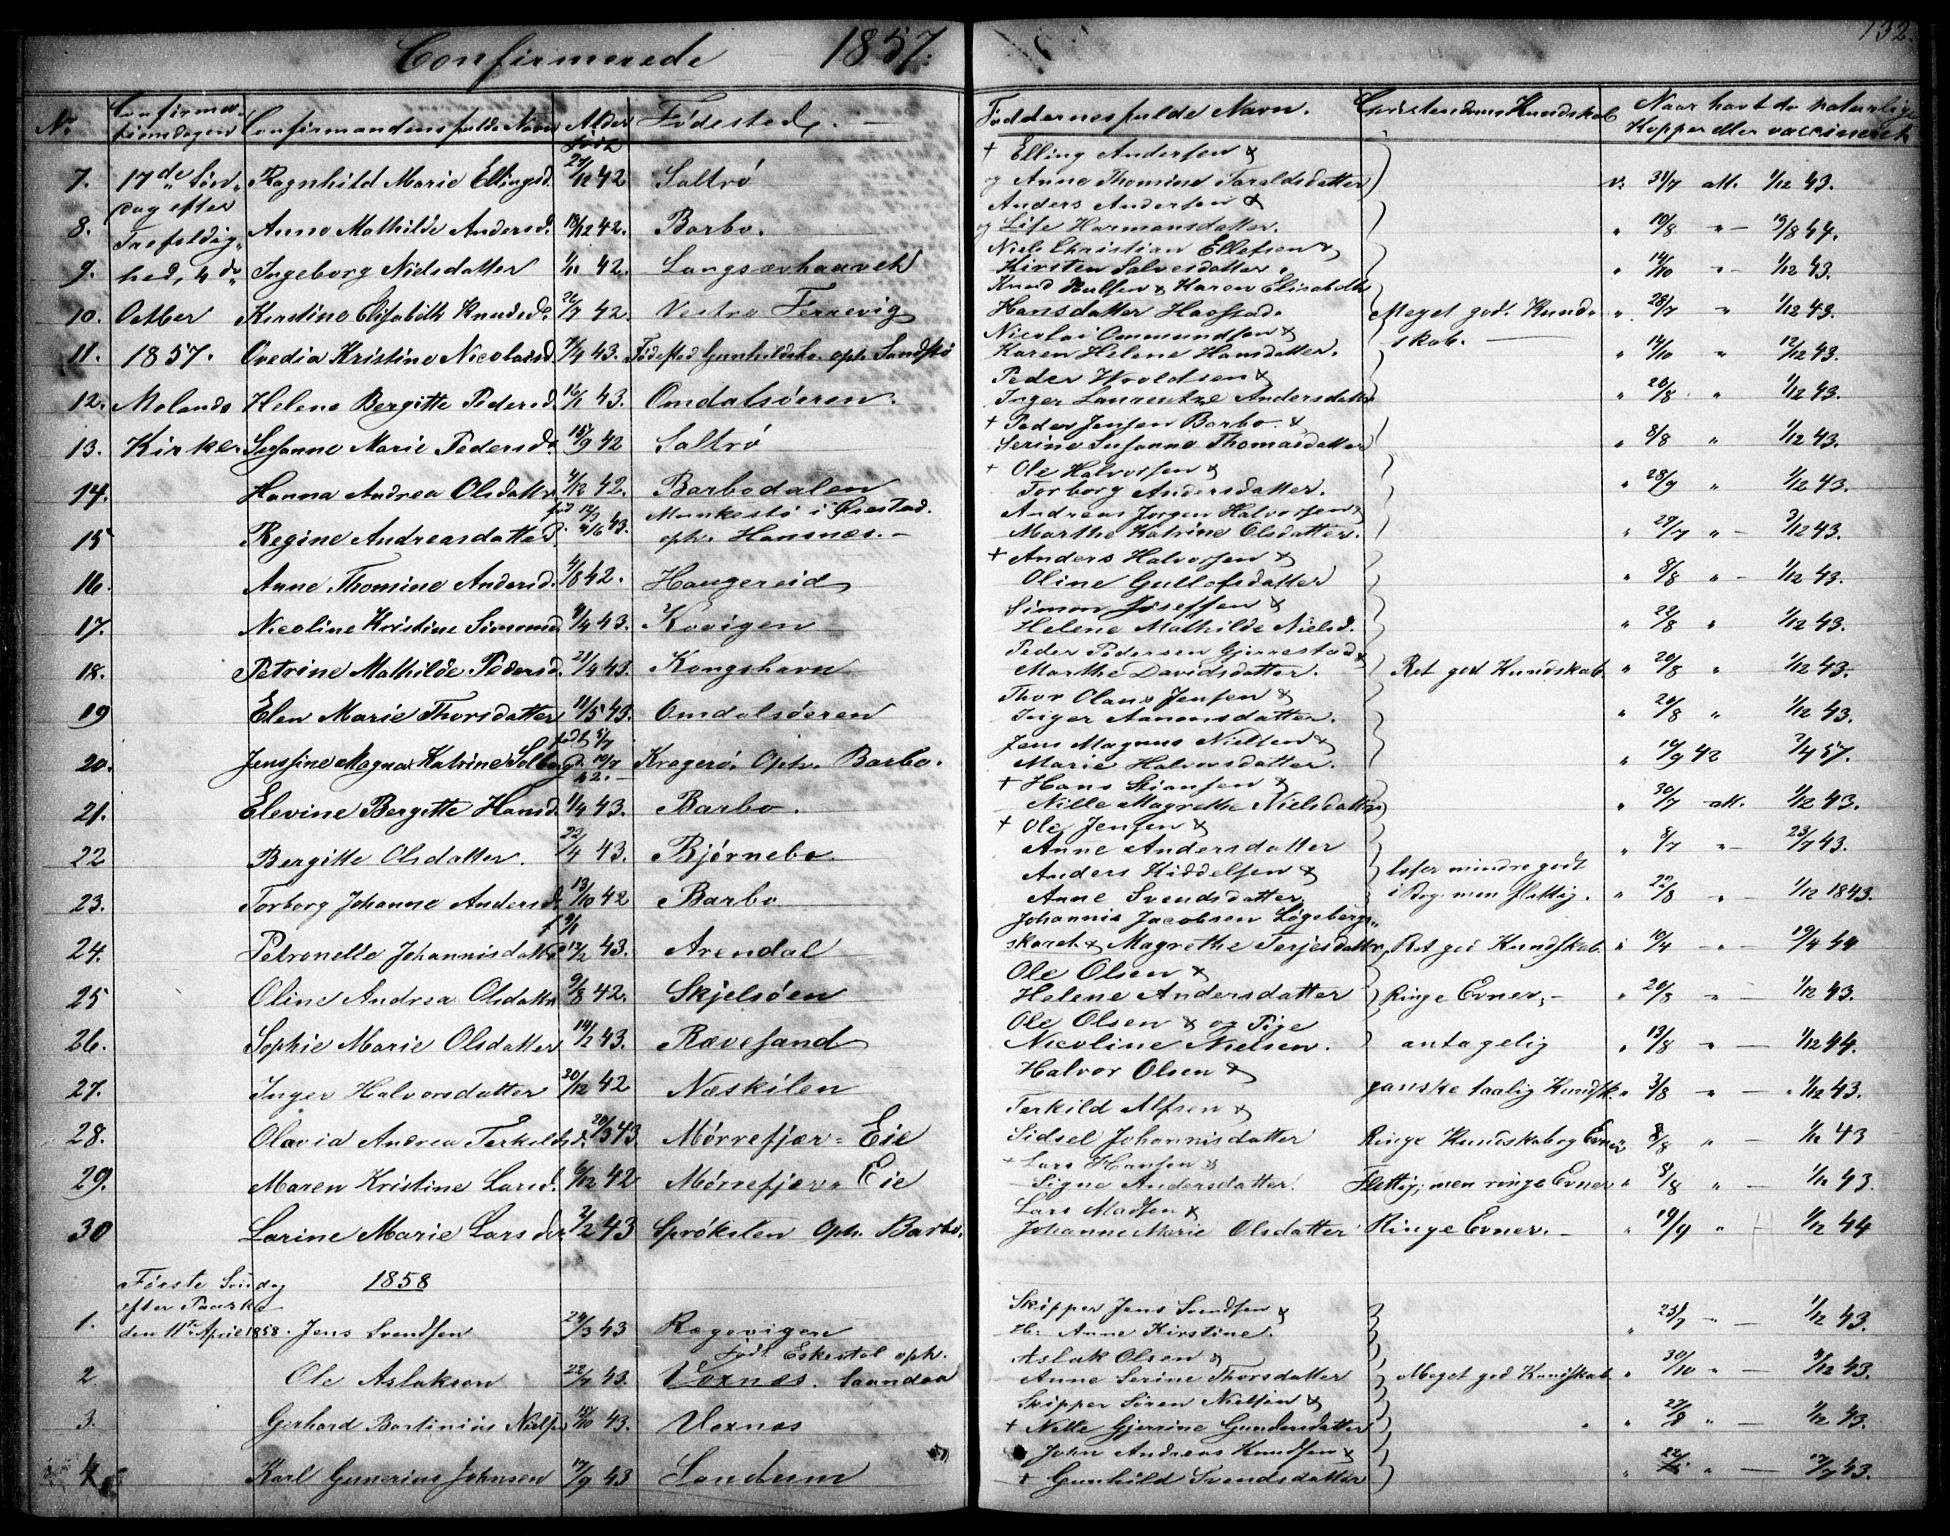 Confirmerede 1857.
132.
No Confirmationsdagen Confirmandens fulde Navn Alder Født Fødested. Forældrenes fulde Navn. Christendoms Kundskab Naar havt de naturlige Kopper eller vaccineret
7. 17de Søn- Ragnhild Marie Ellingsd. 42 Saltrø + Elling Andersen & og Anne Thomine Taraldsdatter v. 31/7 att. 1/12 43.
8. dag efter Trefoldig- Anne Mathilde Andersd. 18/12 42. Barbo. Anders Andersen & og Lise Hermansdatter. " 19/8 " — 19/8 44.
9. hed, 4de Ingeborg Nielsdatter 1/11 42. Langsævhaaveh Niels Christian Ellefsen & Kirsten Salvesdatter. " 14/10 " — 1/12 43.
10. Octber Kirstine Elisabeth Knudsd. 26/7 42. Vestre Ferrevig Knud Nielsen & Karen Elisabeth Hansdatter Meget god Kundskab. " 28/7 " 1/12 43.
11. 1857. Ovedia Kristine Nicolaisd. 7/4 43. Fødested Gunhildsbo. oph. Sandstø Nicolai Ommundsen & Karen Helene Hansdatter. " 14/10 " 12/12 43.
12. Molands Helene Bergitte Pedersd. 16/1 43. Omdalsøeren. Peder Wroldsen & Inger Laurentze Andersdatter " 20/8 " 1/12 43.
13. Kirke Susanne Marie Pedersd. 15/9 42 Saltrø + Peder Jensen Barbo & Serine Susanne Thomasdatter " 8/8 " 1/12 43.
14. Hanna Andrea Olsdatter 4/12 42. Barbodalen + Ole Halvorsen & Torborg Andersdatter. " 28/9 " 1/12 43.
15 Regine Andreasdatter 43. Munkestø i Øiestad. oph. Hansnæs. — Andreas Jørgen Halvorsen & Marthe Katrine Olsdatter. " 29/7 " — 3/12 43.
16. Anne Thomine Andersd. 4/8 42. Haugereid + Anders Halvorsen & Oline Gullofsdatter " 8/8 " — 1/12 43.
17. Nicoline Kristine Simonsd. 9/4 43. Kovigen Simon Joseffsen & Helene Mathilde Nielsd. " 22/8 " 1/12 43.
18. Petrine Mathilde Pedersd. 21/4 43. Kongshavn Peder Pedersen Gjerrestad & Marthe Davidsdatter. Ret god Kundskab. " 20/8 " 1/12 43.
19 Elen Marie Thorsdatter 11/5 43. Omdalsøeren Thor Olaus Jensen & Inger Aanonsdatter. " 20/8 " 1/12 43.
20. Jenssine Magna Katrine Solberg født 5/7 42. — Kragerø. Oph. Barbo. Jens Magnus Nielsen & Marie Halvorsdatter. " 19/9 42 2/4 57.
21. Elevine Bergitte Hansd. 1/4 43. Barbo. + Hans Stiansen & Nille Magrethe Nielsdatter " 30/7 att. 1/12 43.
22 Bergitte Olsdatter. 22/4 43. Bjørnebo + Ole Jensen & Anne Andersdatter " 8/7 " — 23/7 43.
23. Torborg Johanne Andersd. 13/10 42 Barbo Anders Kiddelsen & Anne Svendsdatter læser mindre godt i Bog, men flittig. " 22/8 " — 1/12 1843.
24. Petronelle Johannisdatter f. 9/1 12/2 43. Arendal Johannis Jacobsen Løgebergs- skaret & Magrethe Terjesdatter Ret god Kundskab. " 10/4 " — 19/4 44
25 Oline Andrea Olsdatter 9/8 42. Skjelsøen Ole Olsen & Helene Andersdatter Ringe Evner. — " 20/8 " — 1/12 43.
26. Sophie Marie Olsdatter 14/2 43. Rævesand Ole Olsen & og Pige Nicoline Nielsen. antagelig " 13/8 " — 1/12 44.
27. Inger Halvorsdatter 20/12 42 Næskilen Halvor Olsen & ganske taalig Kundsk. " 3/8 " — 1/12 43.
28. Olavia Andrea Terkildsd. 20/3 43. Mørrefjær- Eie Terkild Alfsen & Sidsel Johannisdatter Ringe Kundskab og Evner " 8/8 " — 1/12 43
29. Maren Kristine Larsd. 6/12 42 Mørrefjær- Eie + Lars Hansen & Signe Andersdatter. Flittig, men ringe Evner " 8/8 " — 1/12 43.
30 Larine Marie Larsdtr 2/2 43 Sprøkilen Oph. Barbo. Lars Madsen & Johanne Marie Olsdatter Ringe Evner. — " 19/9 " 1/12 44
Første Søndag efter Paaske den 11te April 1858.
1858
1. Jens Svendsen 29/3 43 Rægevigen Skipper Jens Svendsen & H. Anne Kirstine. " 25/7 " — 1/12 43.
2. Ole Aslaksen 22/7 43. født Eskestøl oph. Voxnæs. Saandaa Aslak Olsen & Anne Serine Thorsdatter Meget god Kundskab. " 30/10 " — 3/12 43.
3. Gerhard Bartinius Nielsen 15/10 43. Voxnæs Skipper Søren Nielsen & + Nille Gjerrine Gundersdatter " 27/9 " — 1/12 43.
4. Karl Gunerius Johnsen 17/9 43 Sandum John Andreas Knudsen & + Gunhild Svendsdatter " — 43.